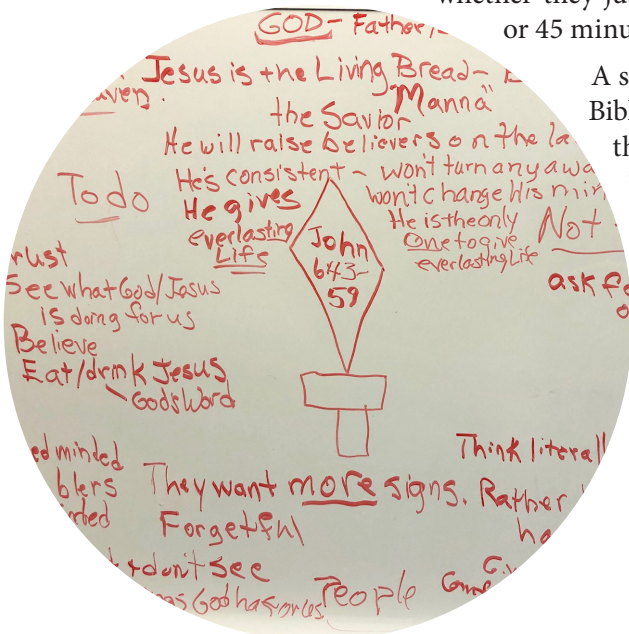 or 45 minu
A s
Bibl
th
GOD - Father/
Jesus is the Living Bread -
aven.
"Manna"
the Savior
He will raise believers on the la
He's consistent - won't turn any awa
won't change His min
To do
He gives
everlasting
Life
He is the only
One to give
everlasting Life
Not
John
6:43-
59
rust
See what God/Jesus
is doing for us
Believe
Eat/drink Jesus
God's Word
ask fo
ed minded
blers
They want more signs. Rather
Forgetful
Think literall
ha
+ don't see
as God has for us
People